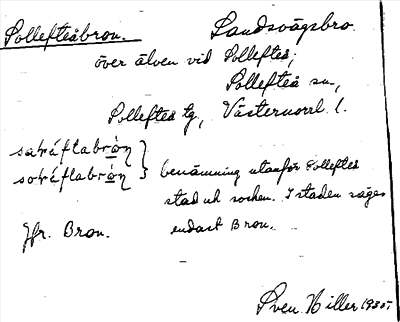 Sollefteåbron. Landsvägsbro
över älven vid Sollefteå,
Sollefteå sn.,
Sollefteå tg, Västernorrl. l.
benämning utanför Sollefteå
stad och socken. I staden säges
Jfr. Bron. endast Bron.
Sven Hiller 1935